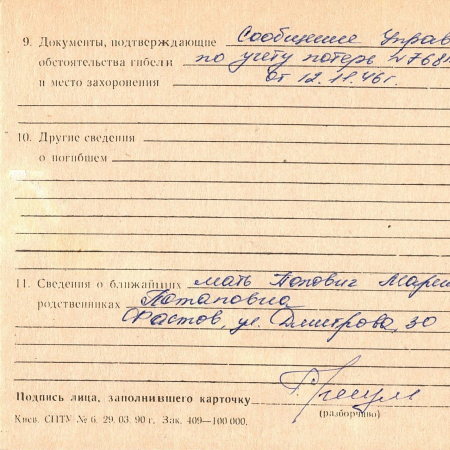 9. Документы, подтверждающие Сообщение Управ
обстоятельства гибели по учету потерь №768
и место захоронения от 12.11.46г.
10. Другие сведения
о погибшем
11. Сведения о ближайших мать Попович Мари
родственниках Потаповна
Фастов, ул. Дмитрова, 30
Подпись лица, заполнившего карточку
(разборчиво)
Киев. СПТУ № 6. 29. 03. 90 г. Зак. 409—100 000.